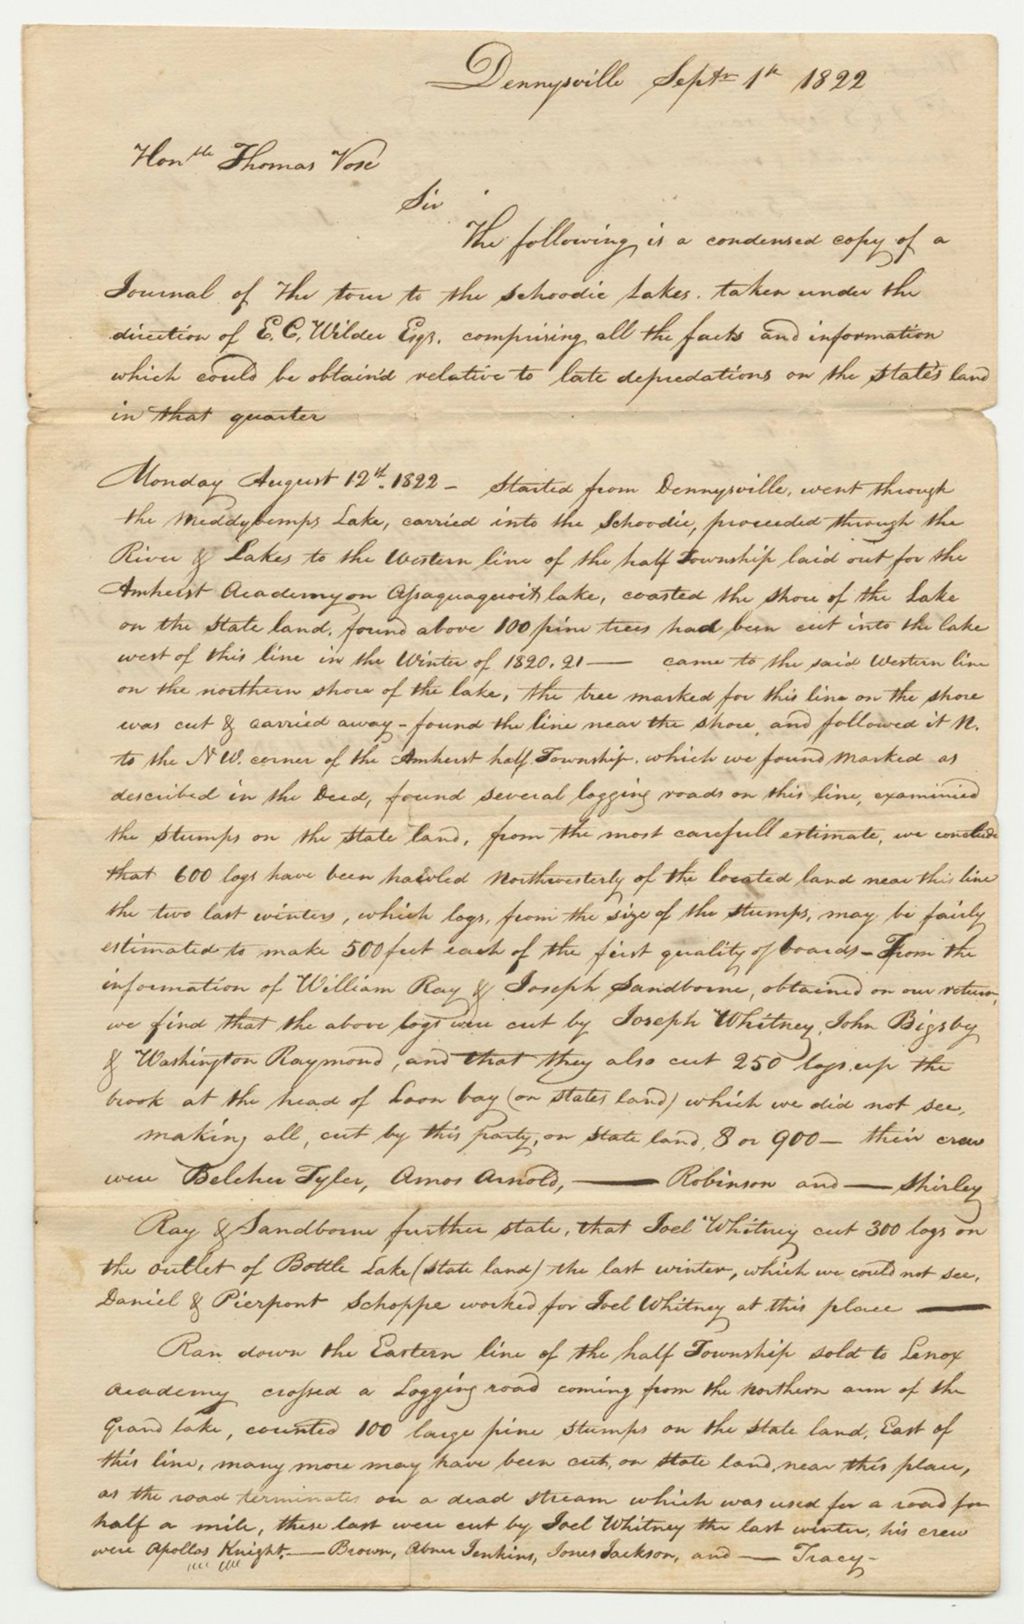 Dennysville Septr 1st 1822
Honble Thomas Vose
Sir
The following is a condensed copy of a
Journal of the tour to the Schoodic Lakes. taken under the
direction of E. C. Wilder Esqr. comprising all the facts and information
which could be obtain'd relative to late depredations on the State's land
in that quarter
Monday August 12th. 1822 – Started from Dennysville, went through
the Meddybemps Lake, carried into the Schoodic, proceeded through the
River & Lakes to the Western line of the half Township laid out for the
Amherst Academy on Assaquaguoit lake, coasted the shore of the Lake
on the State land. found above 100 pine trees had been cut into the lake
west of this line in the Winter of 1820. 21 — came to the said Western line
on the northern shore of the lake, the tree marked for this line on the shore
was cut & carried away – found the line near the shore, and followed it N.
to the N W. corner of the Amherst half Township. which we found marked as
described in the Deed, found several logging roads on this line, examined
the stumps on the State land, from the most carefull estimate, we conclude
that 600 logs have been hawled Northwesterly of the located land near this line
the two last winters, which logs, from the size of the stumps, may be fairly
estimated to make 500 feet each of the first quality of boards – From the
information of William Ray & Joseph Sandborne, obtained on our return,
we find that the above logs were cut by Joseph Whitney, John Bigsby
& Washington Raymond, and that they also cut 250 logs up the
brook at the head of Loon bay (on states land) which we did not see,
making all, cut by this party, on State land, 8 or 900 — their crew
were Belcher Tyler, Amos Arnold, — Robinson and — Shirley
Ray & Sandborne further state, that Joel Whitney cut 300 logs on
the outlet of Bottle Lake (State land) the last winter, which we could not see,
Daniel & Pierpont Schoppe worked for Joel Whitney at this place —
Ran down the Eastern line of the half Township sold to Lenox
Academy crossed a Logging road coming from the northern arm of the
Grand lake, counted 100 large pine stumps on the State land, East of
this line, many more may have been cut, on State land, near this place,
as the road terminates on a dead stream which was used for a road for
half a mile, these last were cut by Joel Whitney the last winter, his crew
were Apollos Knight, — Brown, Abner Jenkins, Jones Jackson, and — Tracy –